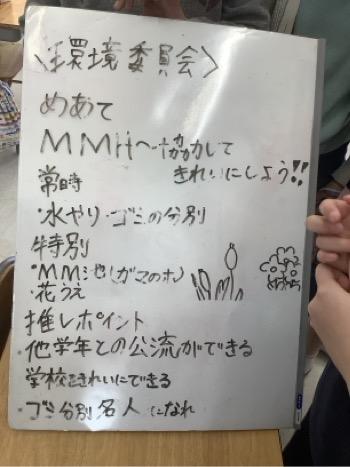 〈環境委員会〉
めあて
MMH〜協力して
きれいにしよう!!
常時
・水やり・ゴミの分別
特別
・MM池(ガマのホ)
・花うえ
推しポイント
他学年との交流ができる
学校をきれいにできる
ゴミ分別名人になれ